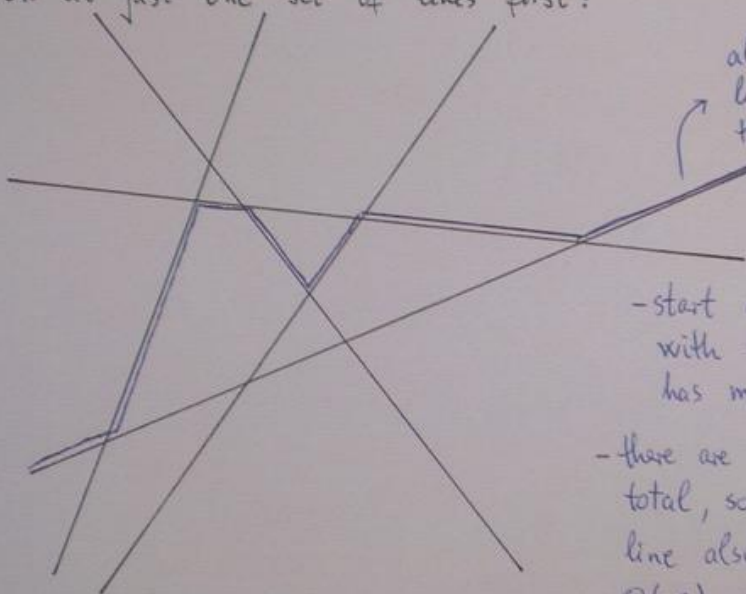 at just one set of lines first.
al
l
t
- start
with
has m
- there are
total, so
line also